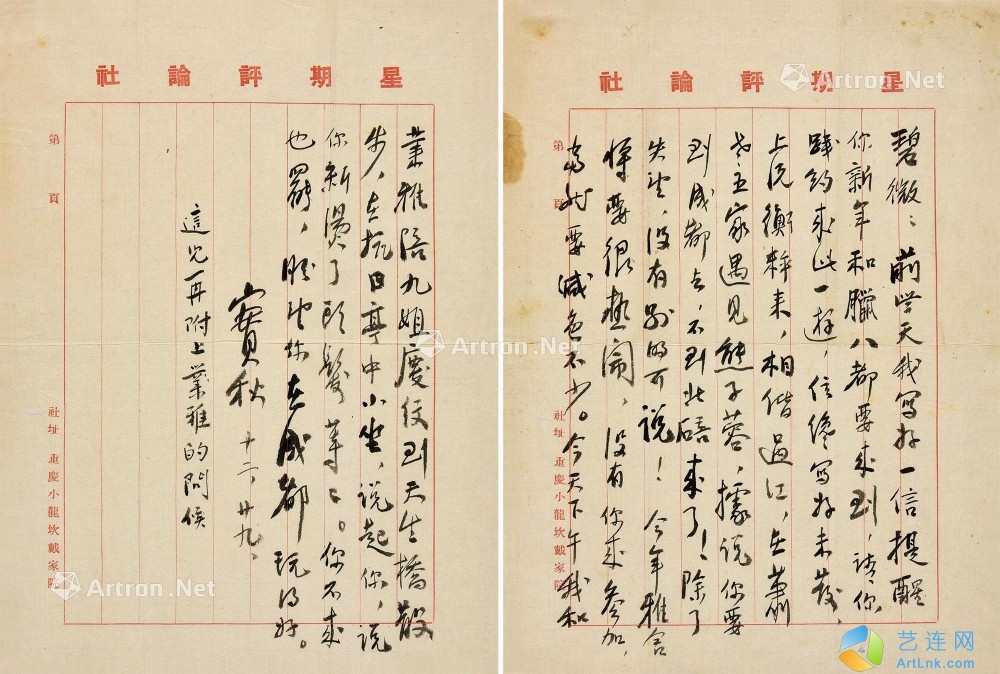 星期評論社
碧微:前些天我寫好一信提醒
你新年和臘八都要來到,請你
踐約來此一遊,信纔寫好未發,
上沅衡粹來,相偕過江,在蕭
老五家遇見熊子蓉,據說你要
到成都去,不到北碚來了!除了
失望,沒有別的可說!今年雅舍
要很熱鬧,沒有你來參加,
當然要減色不少。今天下午我和
第 頁
社址 重慶小龍坎戴家院
星期評論社
業雅陪九姐慶到天生橋散
步,在抗日亭中小坐,說起你,說
你新燙了頭髮等等。你不來
也罷,盼望你在成都玩得好。
實秋 十二、廿九、
這兒再附上業雅的問候
第 頁
社址 重慶小龍坎戴家院
Artron.Net
Artron.Net
Artron.Net
Artron.Net
Artron.Net
艺连网
ArtLnk.com